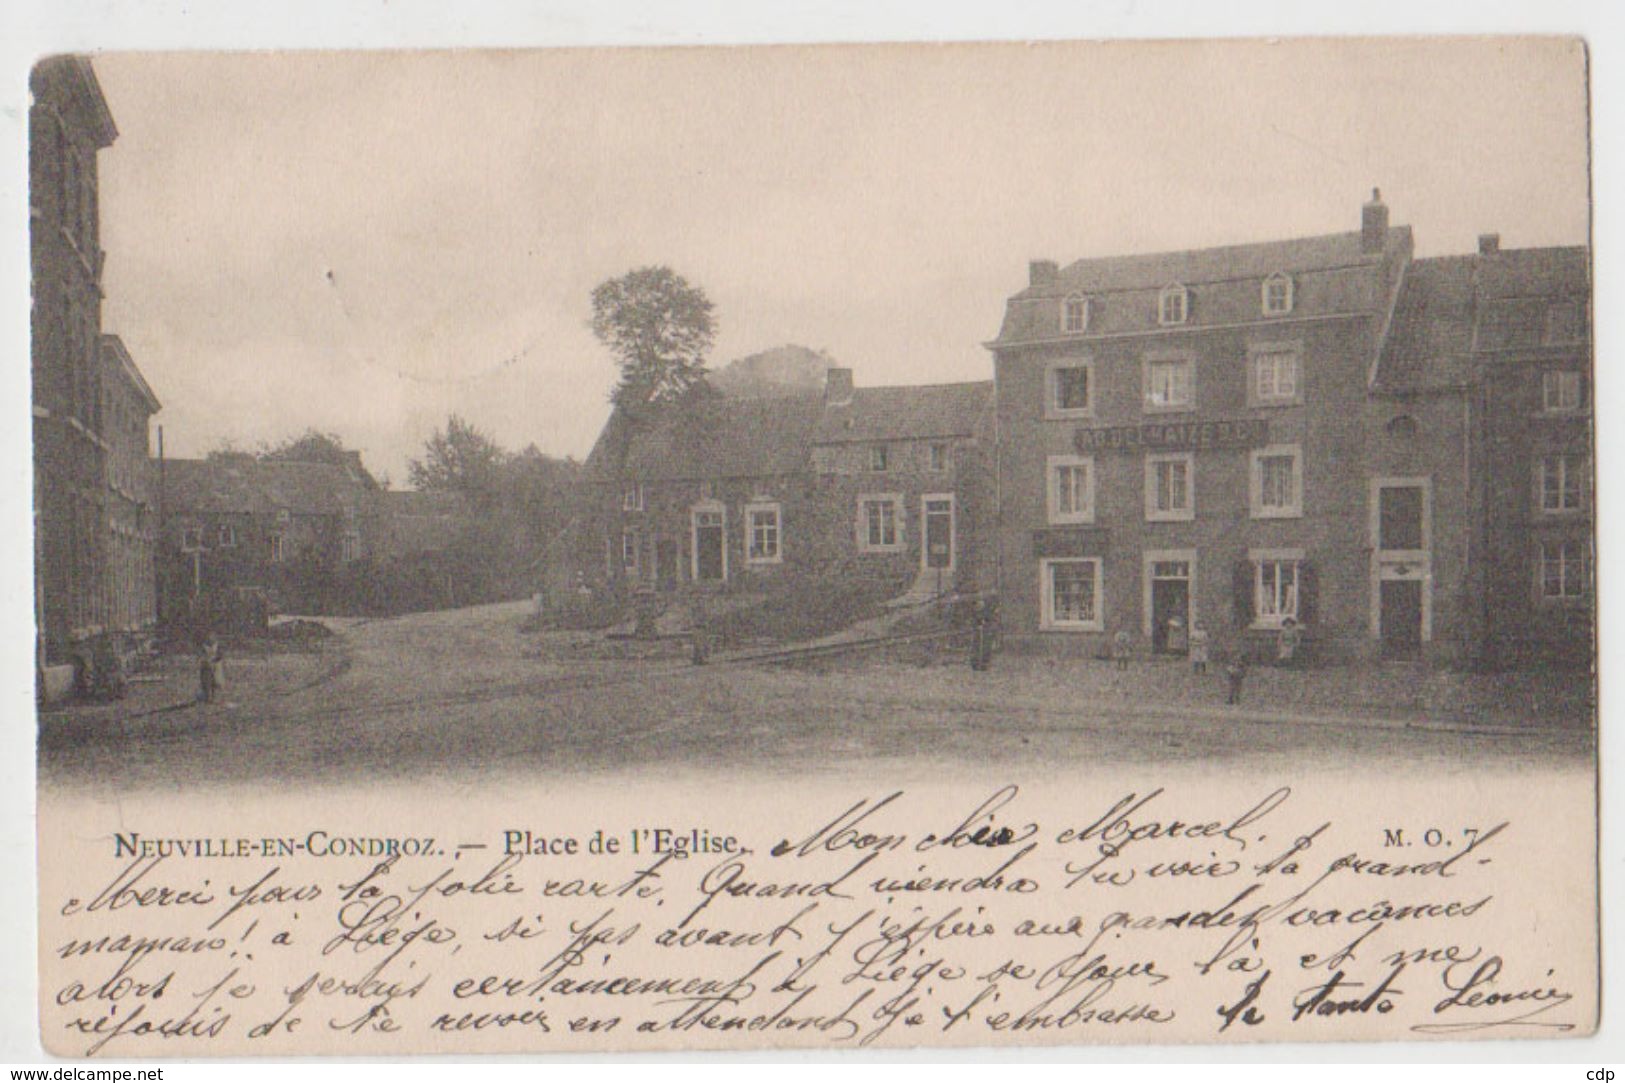 AD. DELHAIZE & Cie
NEUVILLE-EN-CONDROZ. — Place de l'Eglise.
M. O. 7
Mon cher Marcel.
Merci pour ta jolie carte. Quand viendra tu voir ta grand-
maman! à Liége, si pas avant j'éspère aux grandes vacances
alors je serais certainement à Liége ce jour là et me
réjouis de te revoir en attendant je t'embrasse ta tante Léonie
www.delcampe.net
cdp